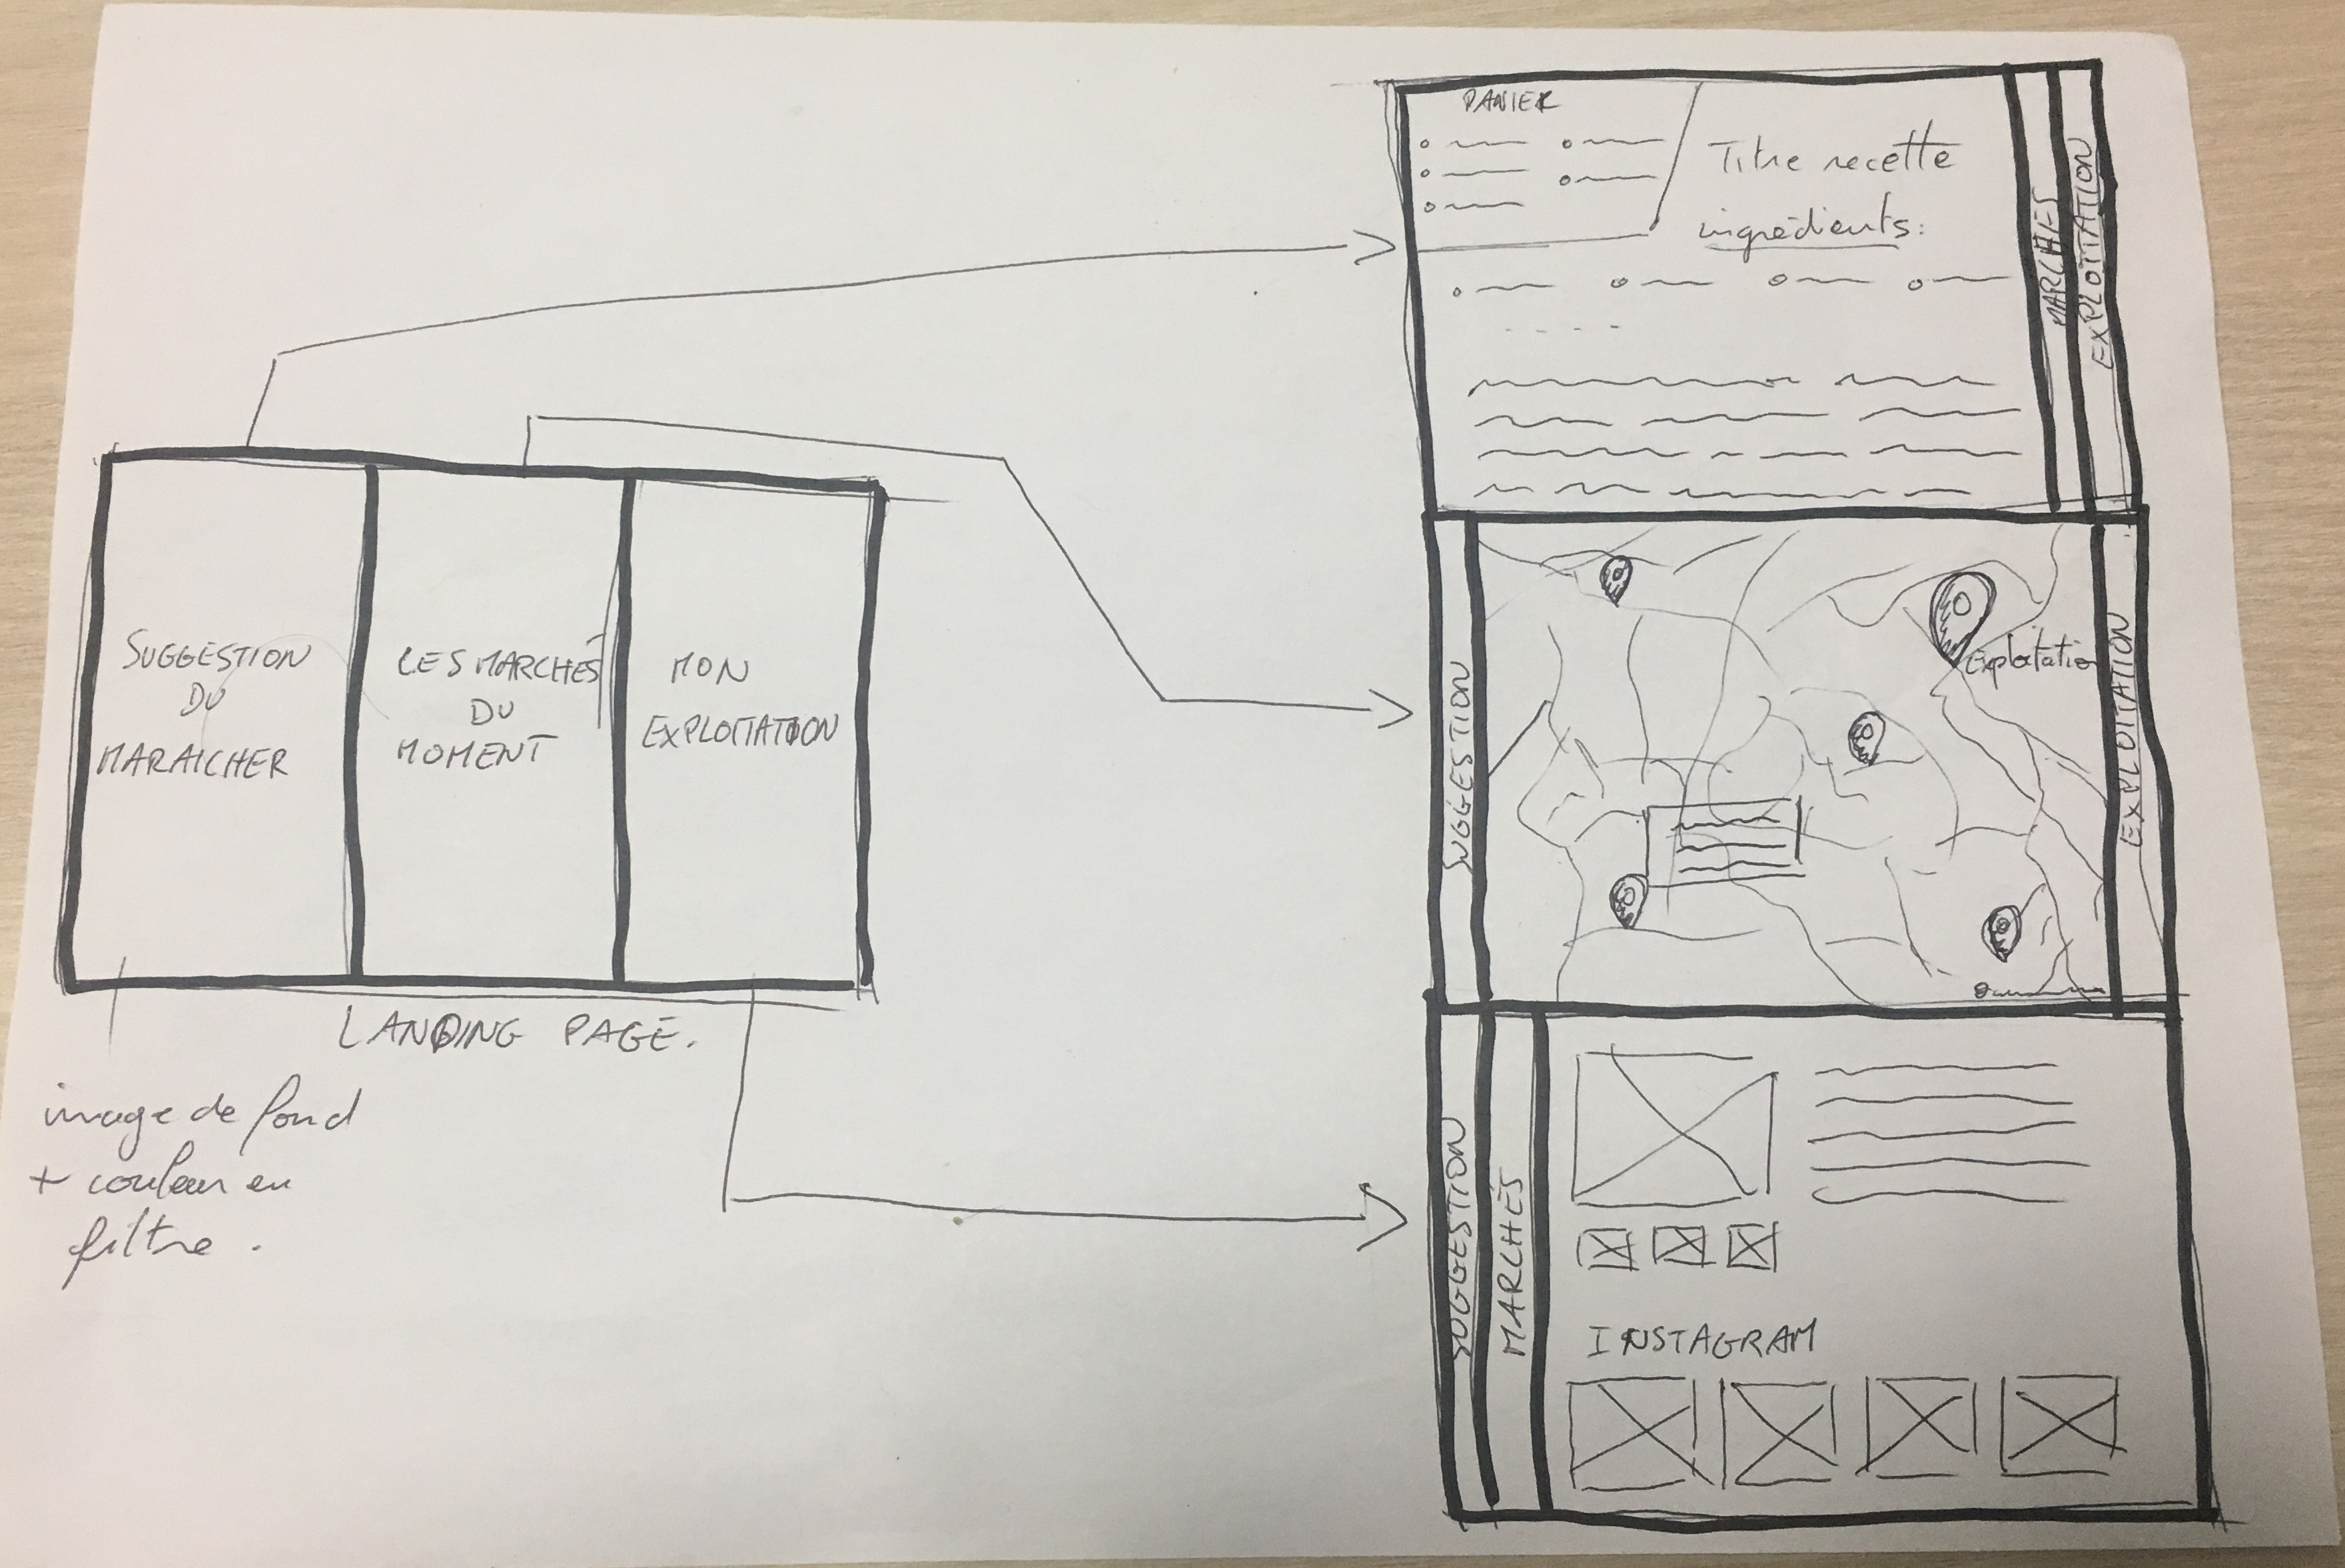 SUGGESTION
DU
MARAICHER
LES MARCHÉS
DU
MOMENT
MON
EXPLOITATION
LANDING PAGE.
image de fond
+ couleur en
filtre.
PANIER
Titre recette
ingrédients:
MARCHÉS
EXPLOITATION
SUGGESTION
Exploitation
EXPLOITATION
SUGGESTION
MARCHÉS
INSTAGRAM